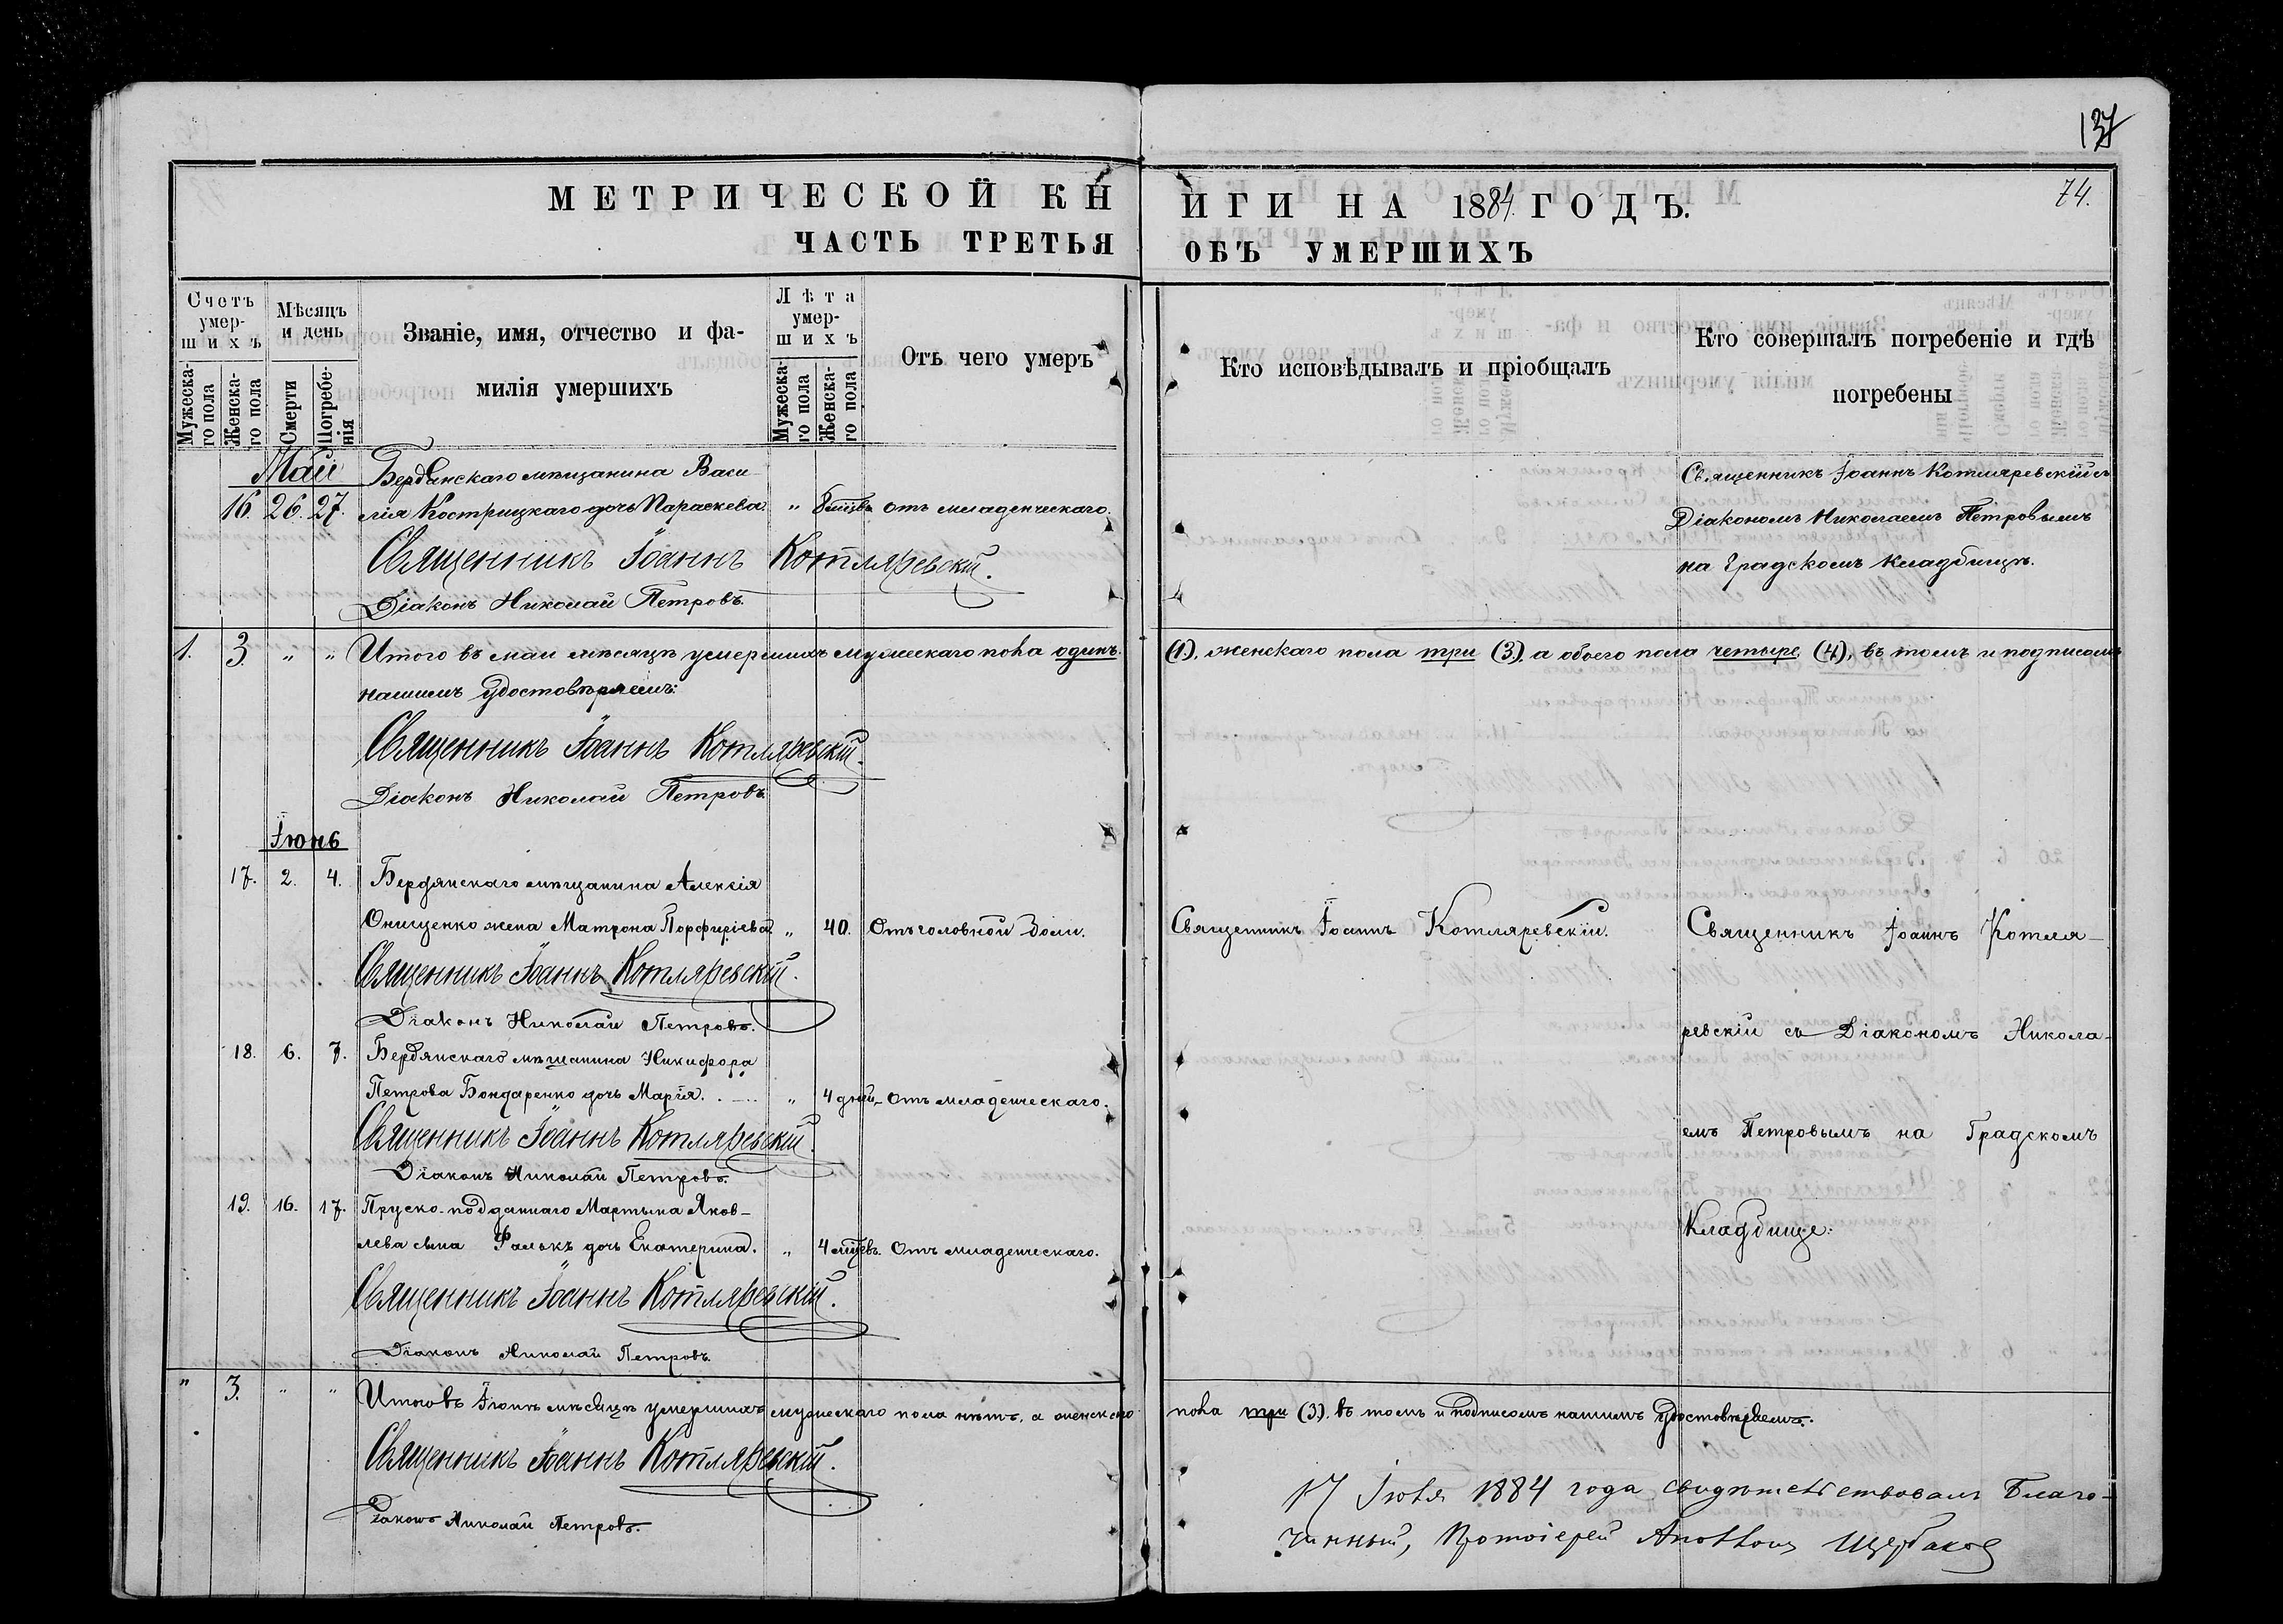 137
74.
МЕТРИЧЕСКОЙ КНИГИ НА 1884 ГОДЪ.
ЧАСТЬ ТРЕТЬЯ ОБЪ УМЕРШИХЪ
Счетъ умер-
шихъ
Мужеска-
го пола
Женска-
го пола
Мѣсяцъ
и день
Смерти
Погребе-
нія
Званіе, имя, отчество и фа-
милія умершихъ
Лѣта
умер-
шихъ
Мужеска-
го пола
Женска-
го пола
Отъ чего умеръ
Кто исповѣдывалъ и пріобщалъ
Кто совершалъ погребеніе и гдѣ
погребены
Май
Бердянскаго мѣщанина Васи-
16. 26. 27. лія Кострицкаго дочь Параскева. " 8 мцвъ отъ младенческаго.
Священникъ Іоаннъ Котляревскій.
Діаконъ Николай Петровъ.
Священникъ Іоаннъ Котляревскій съ
Діакономъ Николаемъ Петровымъ
на Градскомъ кладбищѣ.
1. 3. " " Итого въ маи мѣсяцѣ умершихъ мужескаго пола одинъ (1), женскаго пола три (3), а обоего пола четыре (4), въ томъ и подписомъ
нашимъ удостовѣряемъ:
Священникъ Іоаннъ Котляревскій.
Діаконъ Николай Петровъ.
Іюнь
17. 2. 4. Бердянскаго мѣщанина Алексія
Онищенко жена Матрона Порфиріева. " 40. Отъ головной боли.
Священникъ Іоаннъ Котляревскій.
Діаконъ Николай Петровъ.
18. 6. 7. Бердянскаго мѣщанина Никифора
Петрова Бондаренко дочь Марія. " 4 дней Отъ младенческаго.
Священникъ Іоаннъ Котляревскій.
Діаконъ Николай Петровъ.
19. 16. 17. Пруско-подданнаго Мартына Яков-
лева сына Фалькъ дочь Екатерина. " 4 мцевъ. Отъ младенческаго.
Священникъ Іоаннъ Котляревскій.
Діаконъ Николай Петровъ.
Священникъ Іоаннъ Котляревскій.
Священникъ Іоаннъ Котля-
ревскій съ Діакономъ Никола-
емъ Петровымъ на Градскомъ
Кладбище:
" 3. " " Итого въ Іюнѣ мѣсяцѣ умершихъ мужескаго пола нѣтъ, а женскаго пола три (3). въ томъ и подписомъ нашимъ удостовѣряемъ.
Священникъ Іоаннъ Котляревскій.
Діаконъ Николай Петровъ.
17 Іюля 1884 года свидѣтельствовалъ Благо-
чинный, Протоіерей Щербаков